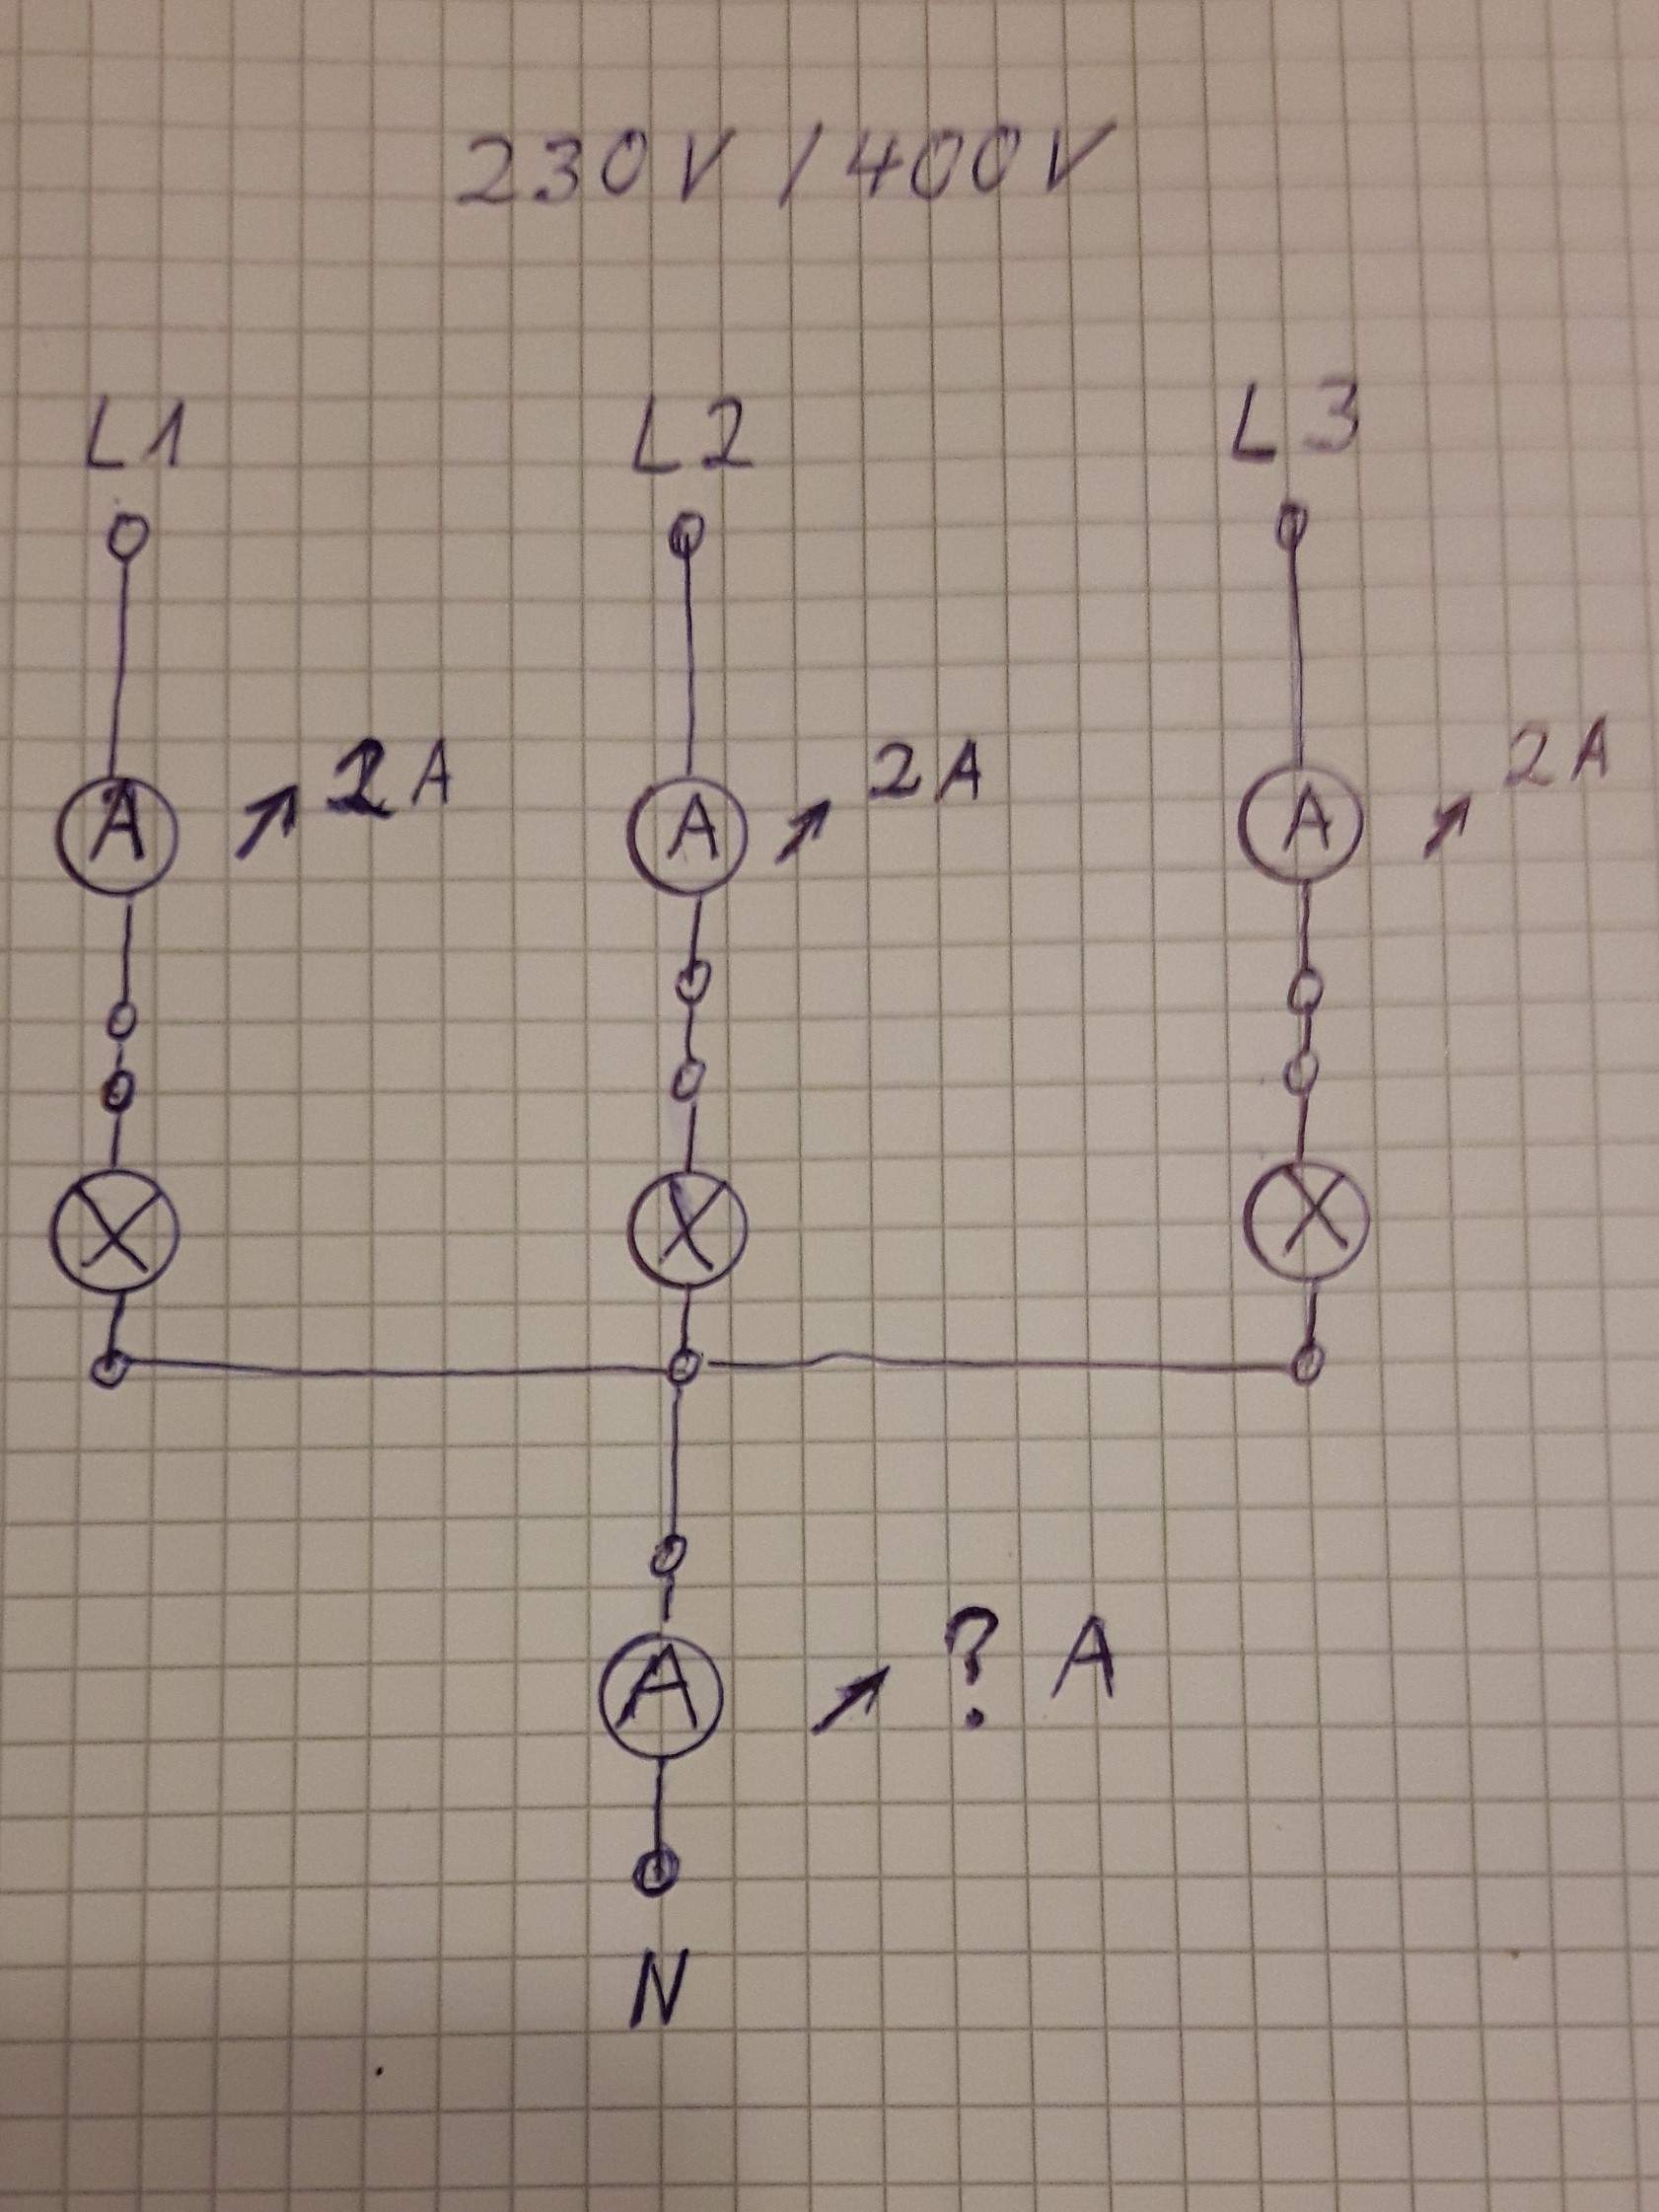 230V / 400V
L1 L2 L3
A 2A A 2A A 2A
A ? A
N